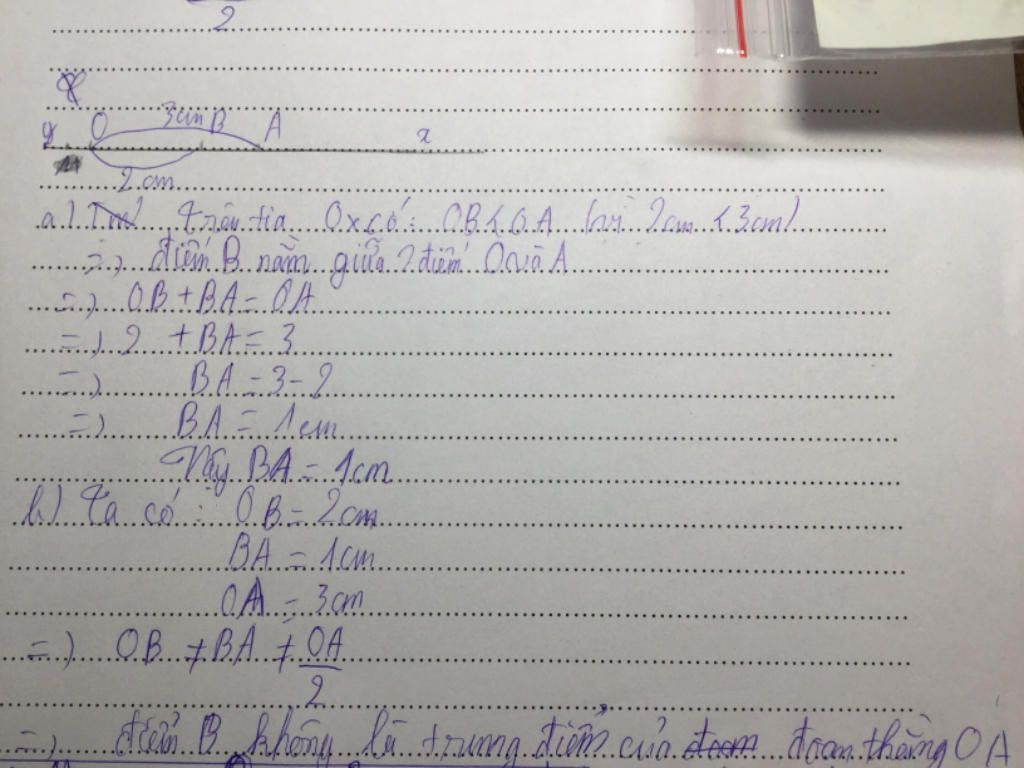 2
3cm
O B A x
2 cm
a) trên tia Ox có: OB < OA (vì 2cm < 3cm)
=> điểm B nằm giữa 2 điểm O và A
=> OB + BA = OA
=> 2 + BA = 3
=> BA = 3 - 2
=> BA = 1cm
Vậy BA = 1cm
b) Ta có: OB = 2cm
BA = 1cm
OA = 3cm
=> OB ≠ BA ≠ OA
2
=> điểm B không là trung điểm của đoạn thẳng OA